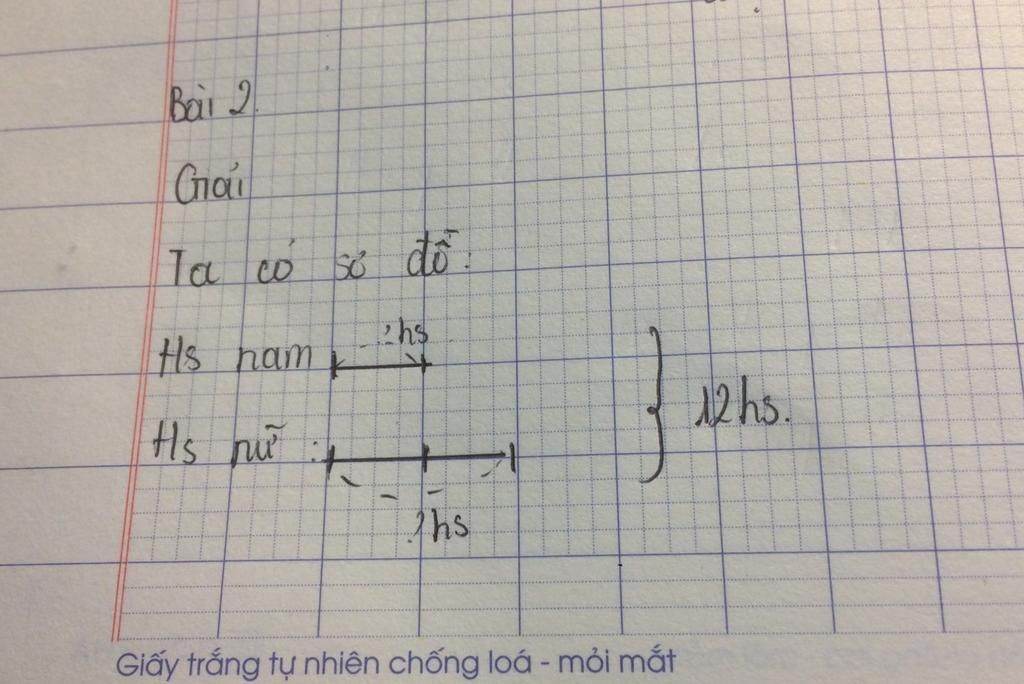 Bài 2.
Giải
Ta có sơ đồ:
?hs
Hs nam
12hs.
Hs nữ :
?hs
Giấy trắng tự nhiên chống loá - mỏi mắt